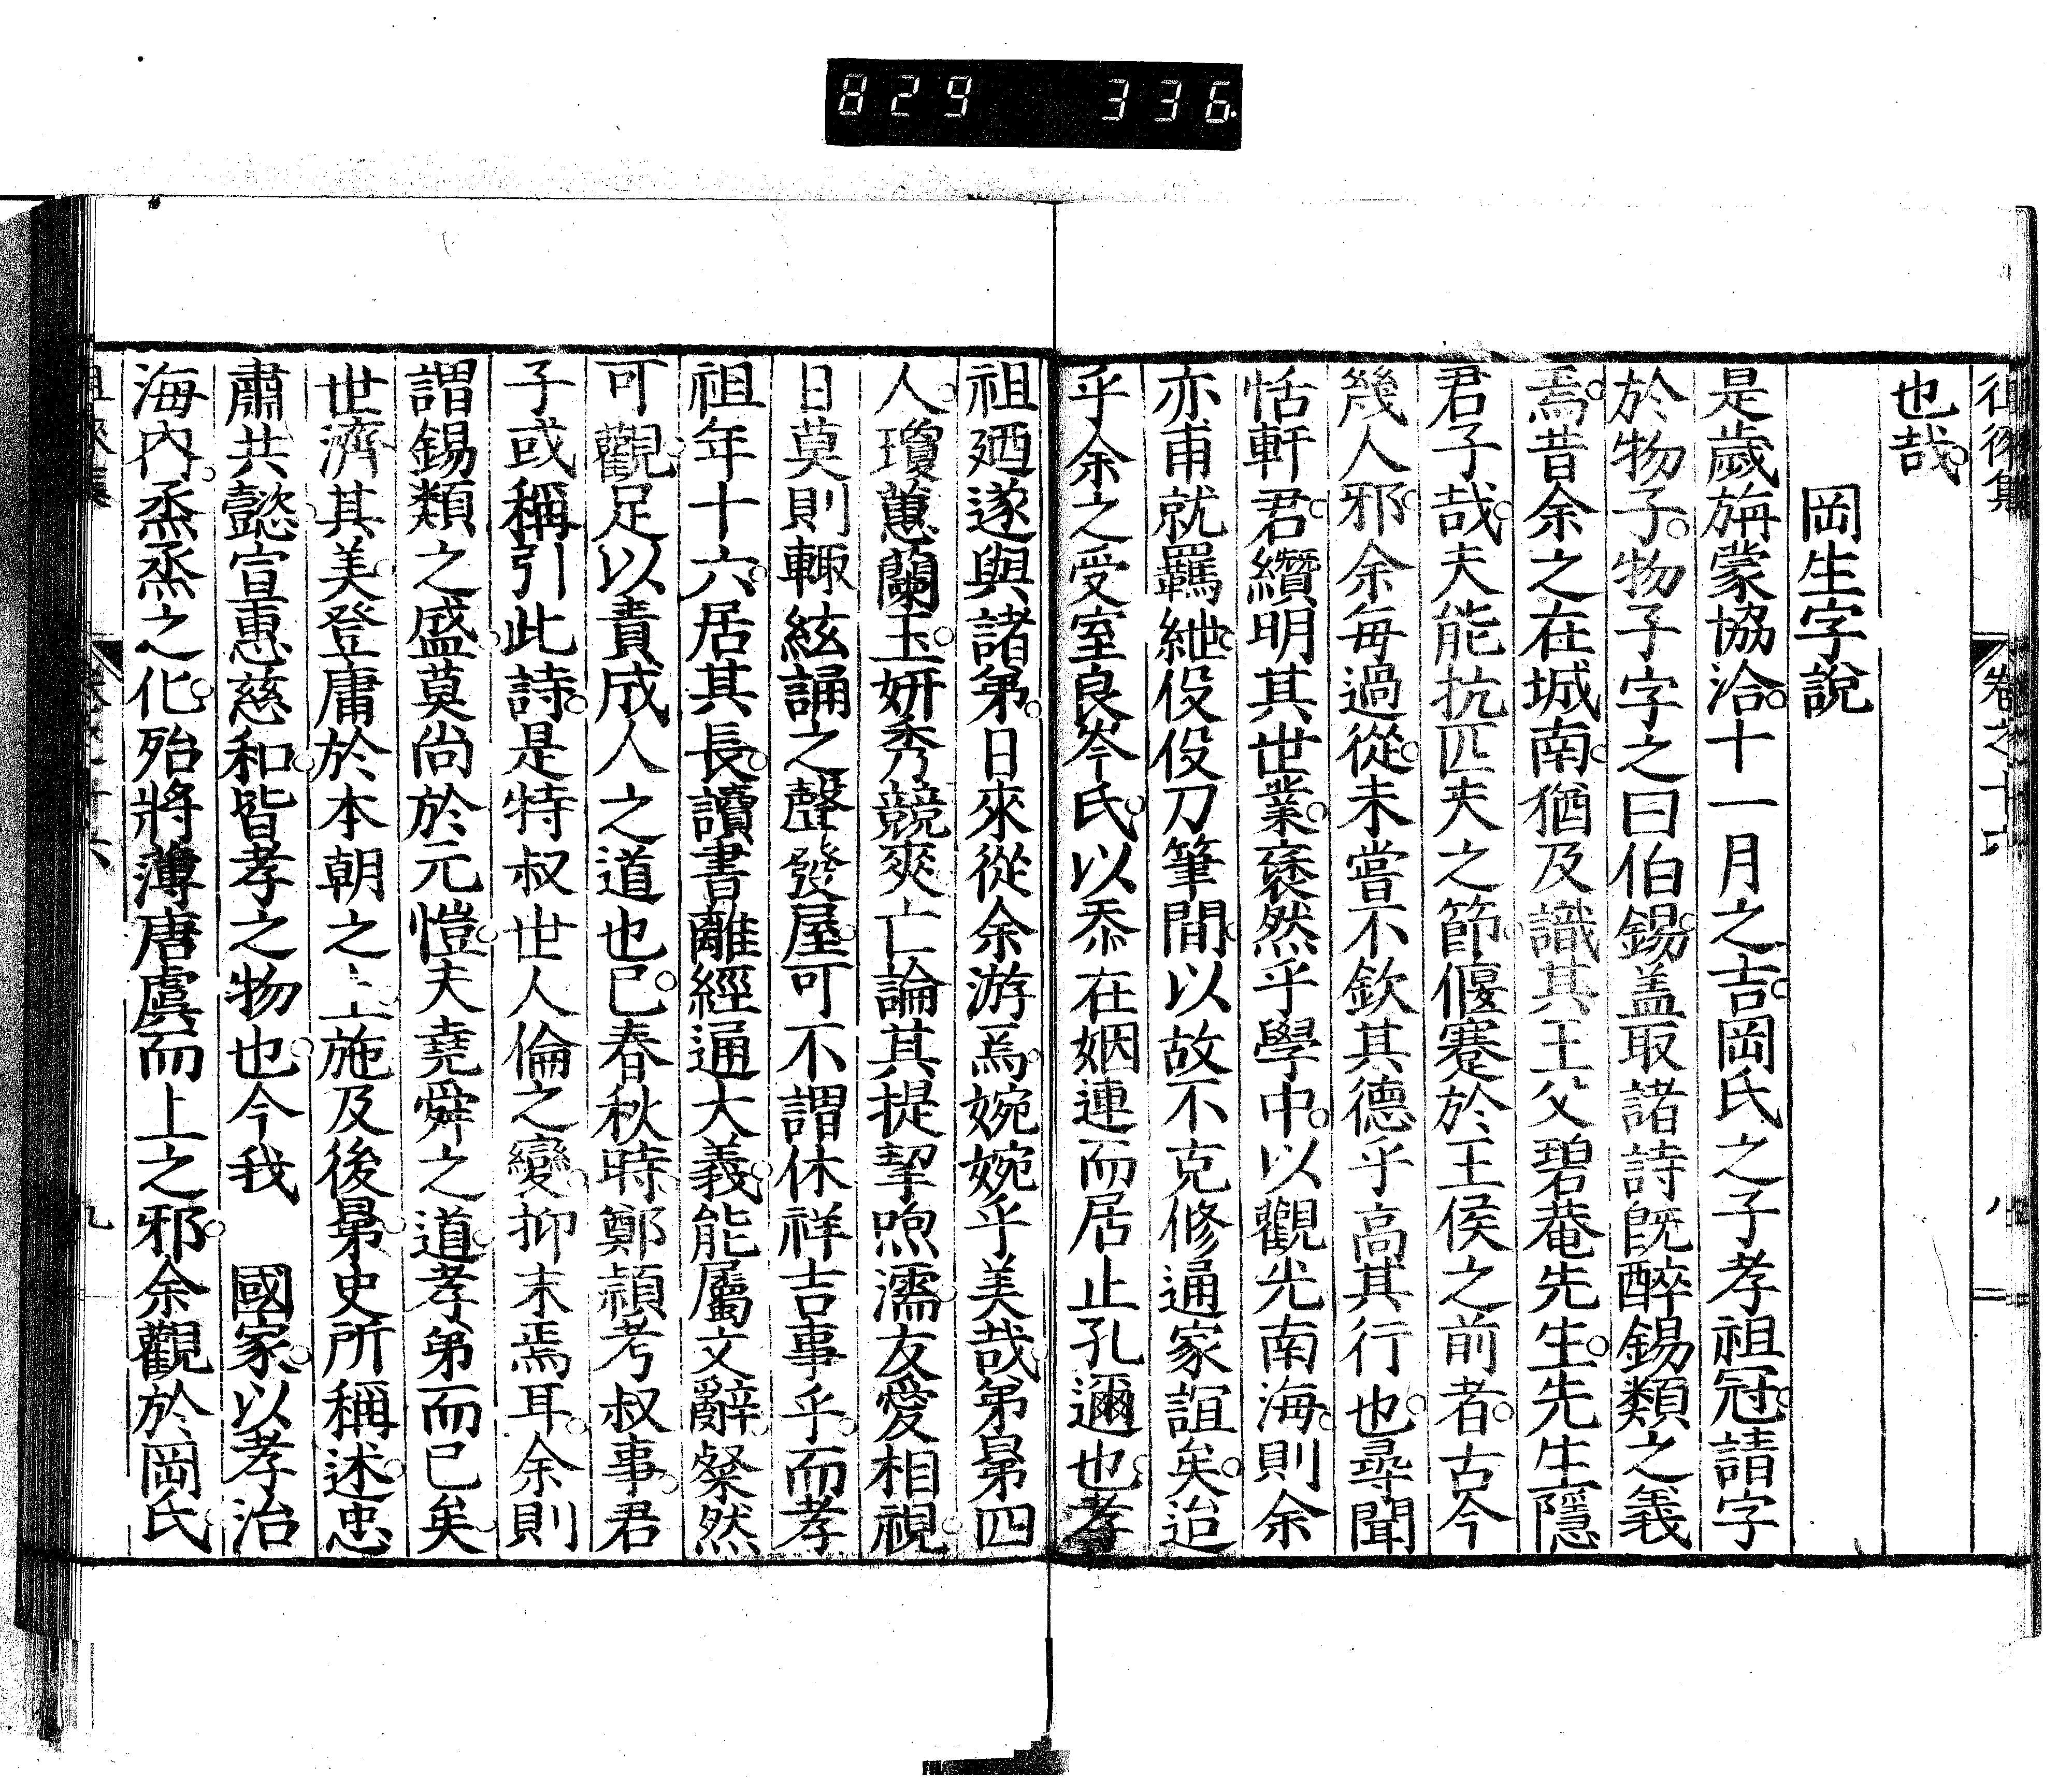 829 336.
徂徠集 卷之十六 八
也哉。
岡生字說
是歲旃蒙協洽。十一月之吉。岡氏之子孝祖冠。請字
於物子。物子字之曰伯錫。盖取諸詩既醉錫類之義
焉。昔余之在城南。猶及識其王父碧菴先生。先生隱
君子哉。夫能抗匹夫之節。偃蹇於王侯之前者。古今
幾人邪。余每過從。未嘗不欽其德乎高其行也。尋聞
恬軒君。纘明其世業。褎然乎學中。以觀光南海。則余
亦甫就羈紲。役役刀筆間。以故不克修通家誼矣。迨
乎余之受室良岑氏。以忝在姻連而居止孔邇也。孝
祖廼遂與諸弟。日來從余游焉。婉婉乎美哉。弟晜四
人。瓊蕙蘭玉。妍秀競爽。亡論其提挈呴濡。友愛相視。
日莫則輙絃誦之聲發屋。可不謂休祥吉事乎。而孝
祖年十六。居其長。讀書離經通大義。能屬文辭。粲然
可觀。足以責成人之道也已。春秋時。鄭穎考叔事。君
子或稱引此詩。是特叔世人倫之變。抑末焉耳。余則
謂錫類之盛。莫尚於元愷。夫堯舜之道。孝弟而已矣。
世濟其美。登庸於本朝之上。施及後晜。史所稱述。忠
肅共懿。宣惠慈和。皆孝之物也。今我 國家。以孝治
海內。烝烝之化。殆將薄唐虞而上之邪。余觀於岡氏。
徂徠集 卷之十六 九